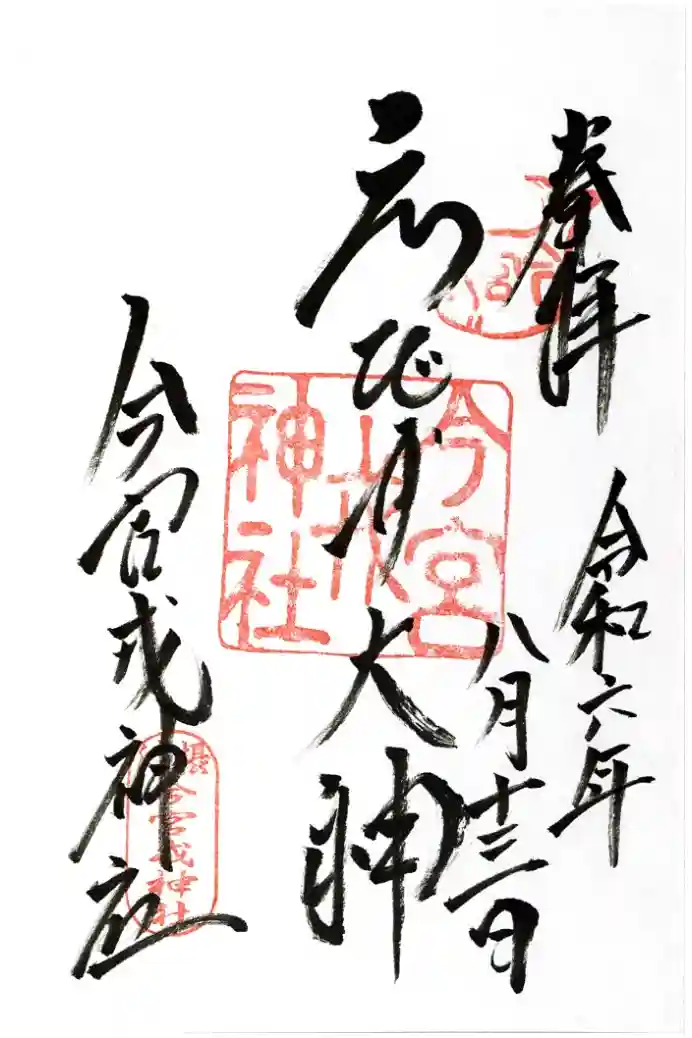 奉拝
令和六年
八月十三日
えびす大神
今宮戎神社
今宮
戎
神社
今宮戎神社